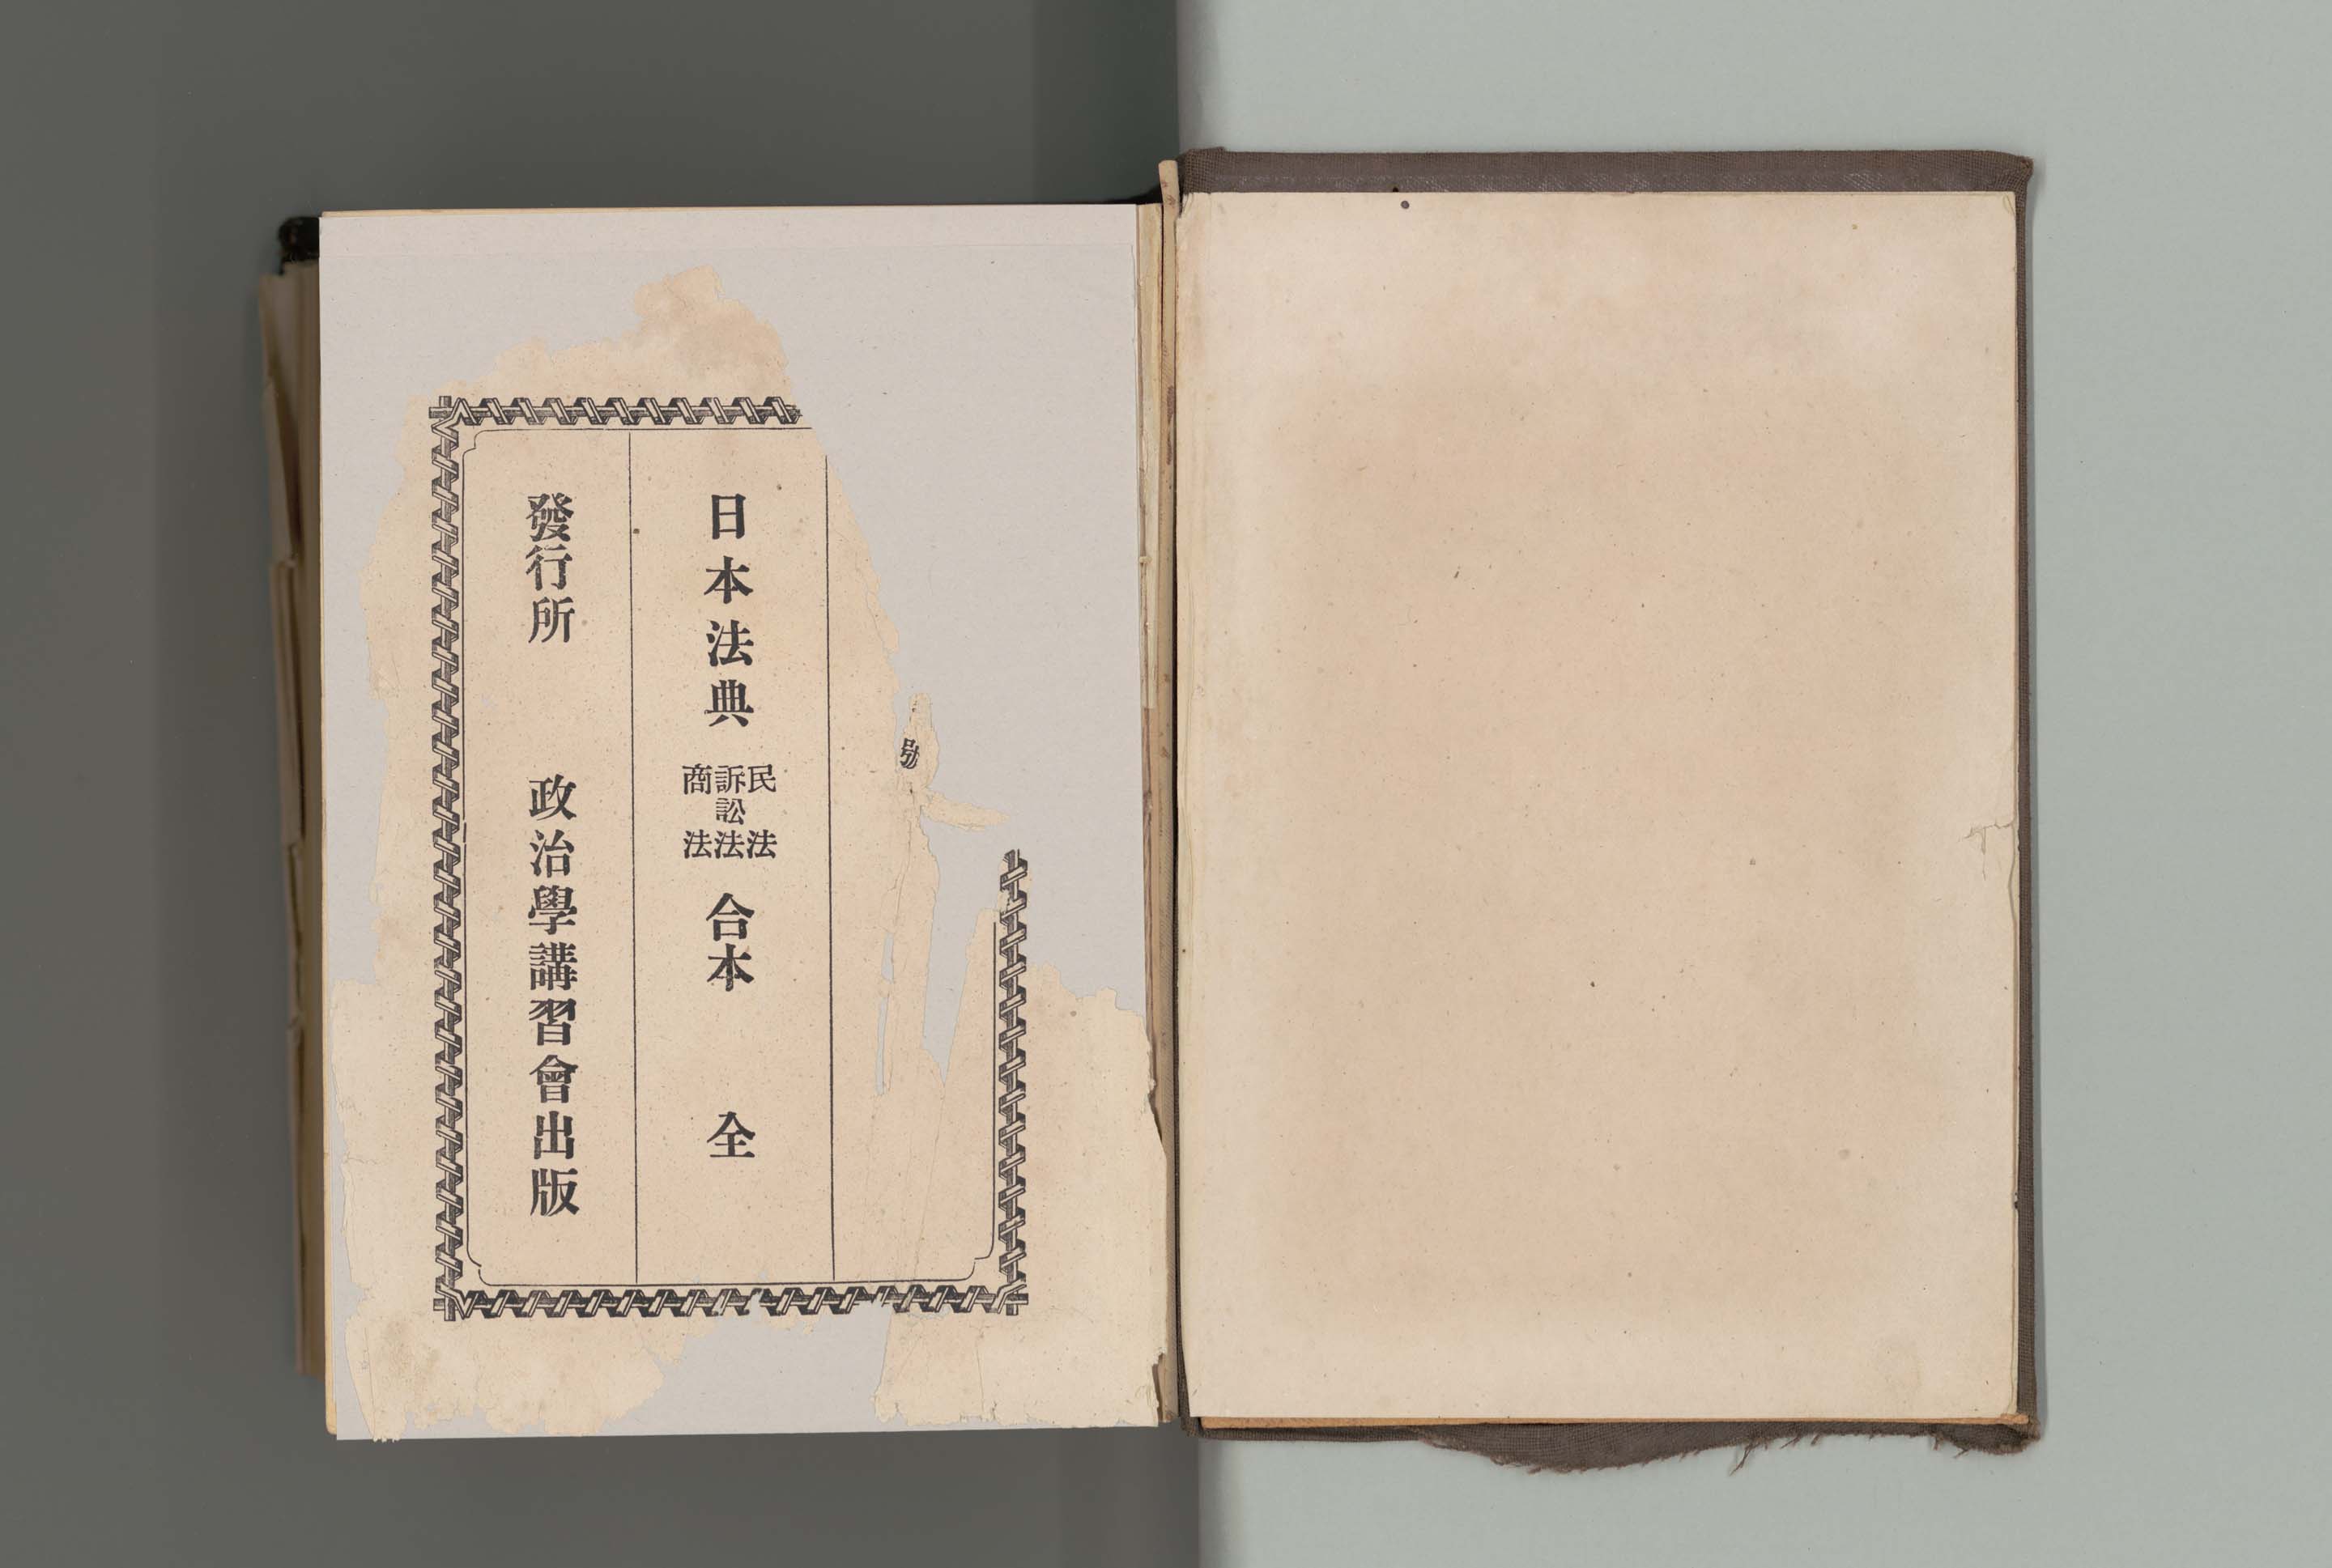 號
日本法典 民法 訴訟法 商法 合本 全
發行所 政治學講習會出版